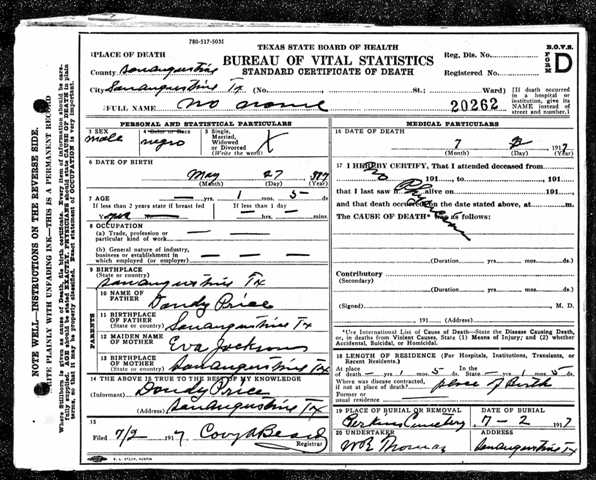 780-517-5031
TEXAS STATE BOARD OF HEALTH
BUREAU OF VITAL STATISTICS
STANDARD CERTIFICATE OF DEATH
B.O.V.S.
FORM D
Reg. Dis. No.
Registered No.
20262
1 PLACE OF DEATH
County San Augustine
City San Augustine Tx (No. St.; Ward)
[If death occurred in a hospital or institution, give its NAME instead of street and number.]
2 FULL NAME no name
PERSONAL AND STATISTICAL PARTICULARS
3 SEX male
4 Color or Race negro
5 Single, Married, Widowed or Divorced (Write the word) X
6 DATE OF BIRTH
May 27
(Month) (Day) (Year)
7 AGE — yrs. 1 mos. 5 ds.
If less than 2 years state if breast fed
If less than 1 day
hrs. min.
8 OCCUPATION
(a) Trade, profession or particular kind of work
(b) General nature of industry, business or establishment in which employed (or employer)
9 BIRTHPLACE
(State or country) San Augustine Tx
PARENTS
10 NAME OF FATHER Dandy Price
11 BIRTHPLACE OF FATHER (State or country) San Augustine Tx
12 MAIDEN NAME OF MOTHER Eva Jackson
13 BIRTHPLACE OF MOTHER (State or country) San Augustine Tx
14 THE ABOVE IS TRUE TO THE BEST OF MY KNOWLEDGE
(Informant) Dandy Price
(Address) San Augustine Tx
15
Filed 7/2 1917
Registrar
MEDICAL PARTICULARS
16 DATE OF DEATH
7 2 1917
(Month) (Day) (Year)
17 I HEREBY CERTIFY, That I attended deceased from
No 191 to 191
that I last saw h alive on 191
and that death occurred on the date stated above, at m.
The CAUSE OF DEATH* was as follows:
(Duration yrs. mos. ds.
Contributory
(Secondary)
(Duration yrs. mos. ds.
(Signed) M. D.
191 (Address)
*Use International List of Cause of Death—State the Disease Causing Death, or, in deaths from Violent Causes, State (1) Means of Injury; and (2) whether Accidental, Suicidal, or Homicidal.
18 LENGTH OF RESIDENCE (For Hospitals, Institutions, Transients, or Recent Residents.)
At place of death — yrs. 1 mos. 5 ds. In the State — yrs. 1 mos. 5 ds.
Where was disease contracted, if not at place of death? place of Birth
Former or usual residence
19 PLACE OF BURIAL OR REMOVAL Perkins Cemetery
DATE OF BURIAL 7-2 1917
20 UNDERTAKER W R Thomas
ADDRESS San Augustine Tx
NOTE WELL—INSTRUCTIONS ON THE REVERSE SIDE.
WRITE PLAINLY WITH UNFADING INK—THIS IS A PERMANENT RECORD